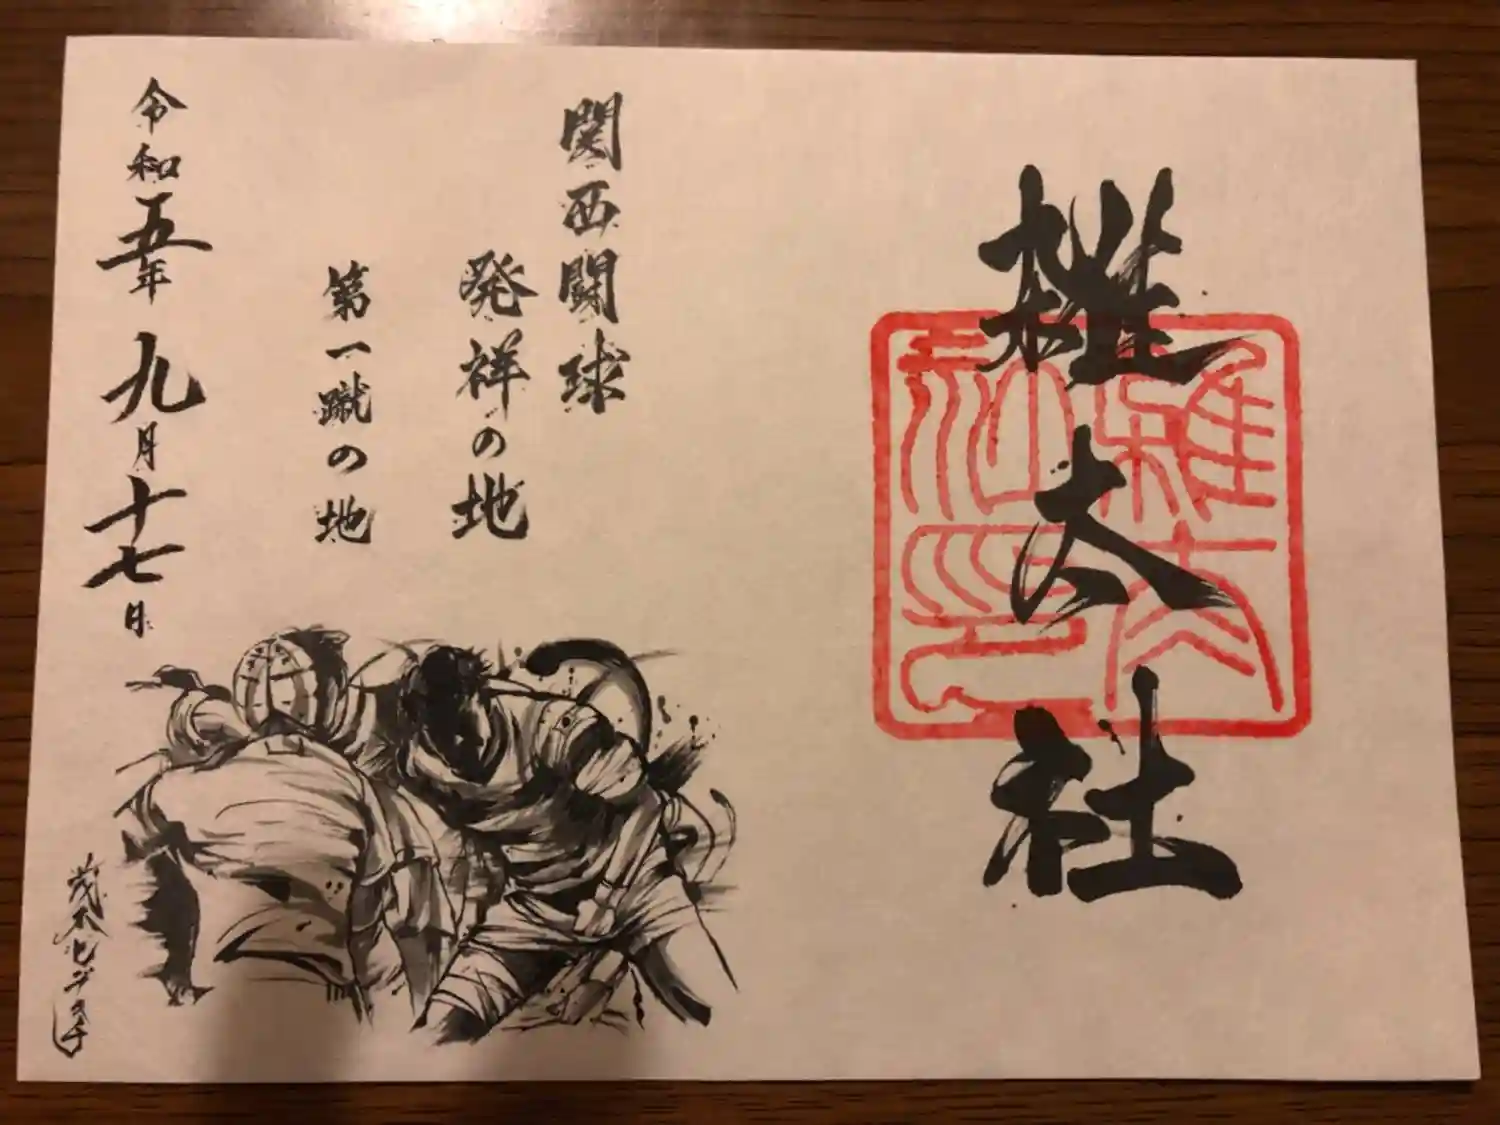 雑太社
雑太社印
関西闘球
発祥の地
第一蹴の地
令和五年九月十七日
茂本ヒデキチ